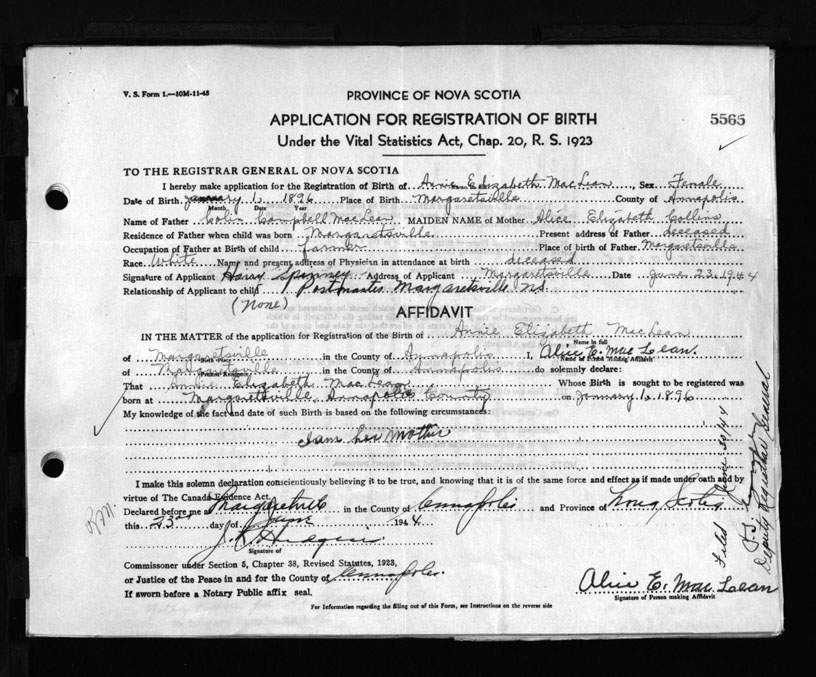 V. S. Form 1.—10M-11-43
PROVINCE OF NOVA SCOTIA
APPLICATION FOR REGISTRATION OF BIRTH
5565
Under the Vital Statistics Act, Chap. 20, R. S. 1923
TO THE REGISTRAR GENERAL OF NOVA SCOTIA
I hereby make application for the Registration of Birth of Annie Elizabeth MacLean, Sex Female
Date of Birth January 1, 1896 Place of Birth Margaretsville County of Annapolis
Month Date Year
Name of Father Colin Campbell MacLean MAIDEN NAME of Mother Alice Elizabeth Collins
Residence of Father when child was born Margaretsville Present address of Father deceased
Occupation of Father at Birth of child farmer Place of birth of Father Margaretsville
Race White Name and present address of Physician in attendance at birth deceased
Signature of Applicant Harry Spinney Address of Applicant Margaretsville Date June 23, 1944
Relationship of Applicant to child Postmaster Margaretsville N.S.
(None)
AFFIDAVIT
IN THE MATTER of the application for Registration of the Birth of Annie Elizabeth MacLean
Name in full
of Margaretsville in the County of Annapolis I, Alice E. MacLean.
Name of Person Making Affidavit
of Margaretsville in the County of Annapolis do solemnly declare:
That Annie Elizabeth MacLean Whose Birth is sought to be registered was
born at Margaretsville Annapolis County on January 1, 1896
My knowledge of the fact and date of such Birth is based on the following circumstances:
I am her Mother
I make this solemn declaration conscientiously believing it to be true, and knowing that it is of the same force and effect as if made under oath and by
virtue of The Canada Evidence Act.
Declared before me at Margaretville in the County of Annapolis and Province of Nova Scotia
this 23rd day of June 1944
Signature of
Commissioner under Section 5, Chapter 38, Revised Statutes, 1923,
or Justice of the Peace in and for the County of Annapolis.
If sworn before a Notary Public affix seal.
Alice E. MacLean
Signature of Person making Affidavit
For Information regarding the filling out of this Form, see Instructions on the reverse side
Filed June 30/44
Deputy Registrar General